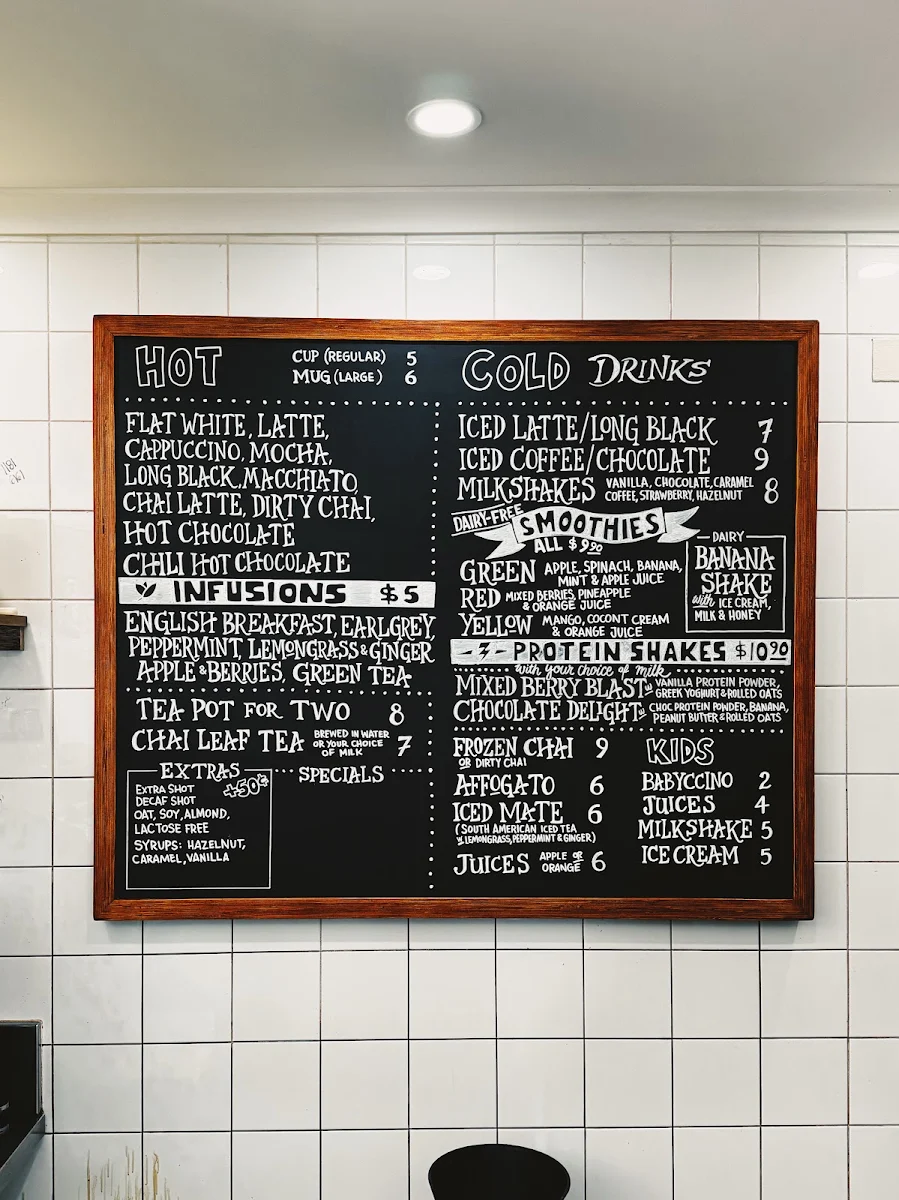 HOT
CUP (REGULAR) 5
MUG (LARGE) 6
FLAT WHITE, LATTE,
CAPPUCCINO, MOCHA,
LONG BLACK, MACCHIATO,
CHAI LATTE, DIRTY CHAI,
HOT CHOCOLATE
CHILI HOT CHOCOLATE
INFUSIONS $5
ENGLISH BREAKFAST, EARLGREY,
PEPPERMINT, LEMONGRASS & GINGER
APPLE & BERRIES, GREEN TEA
TEA POT FOR TWO 8
CHAI LEAF TEA BREWED IN WATER OR YOUR CHOICE OF MILK 7
EXTRAS
+50¢
EXTRA SHOT
DECAF SHOT
OAT, SOY, ALMOND,
LACTOSE FREE
SYRUPS: HAZELNUT,
CARAMEL, VANILLA
SPECIALS
COLD DRINKS
ICED LATTE/LONG BLACK 7
ICED COFFEE/CHOCOLATE 9
MILKSHAKES VANILLA, CHOCOLATE, CARAMEL COFFEE, STRAWBERRY, HAZELNUT 8
DAIRY-FREE SMOOTHIES
ALL $9.90
GREEN APPLE, SPINACH, BANANA, MINT & APPLE JUICE
RED MIXED BERRIES, PINEAPPLE & ORANGE JUICE
YELLOW MANGO, COCONT CREAM & ORANGE JUICE
DAIRY
BANANA
SHAKE
with ICE CREAM,
MILK & HONEY
PROTEIN SHAKES $10.90
with your choice of milk
MIXED BERRY BLAST w/ VANILLA PROTEIN POWDER, GREEK YOGHURT & ROLLED OATS
CHOCOLATE DELIGHT w/ CHOC PROTEIN POWDER, BANANA, PEANUT BUTTER & ROLLED OATS
FROZEN CHAI 9
OR DIRTY CHAI
AFFOGATO 6
ICED MATE 6
(SOUTH AMERICAN ICED TEA
w/ LEMONGRASS, PEPPERMINT & GINGER)
JUICES APPLE OR ORANGE 6
KIDS
BABYCCINO 2
JUICES 4
MILKSHAKE 5
ICE CREAM 5